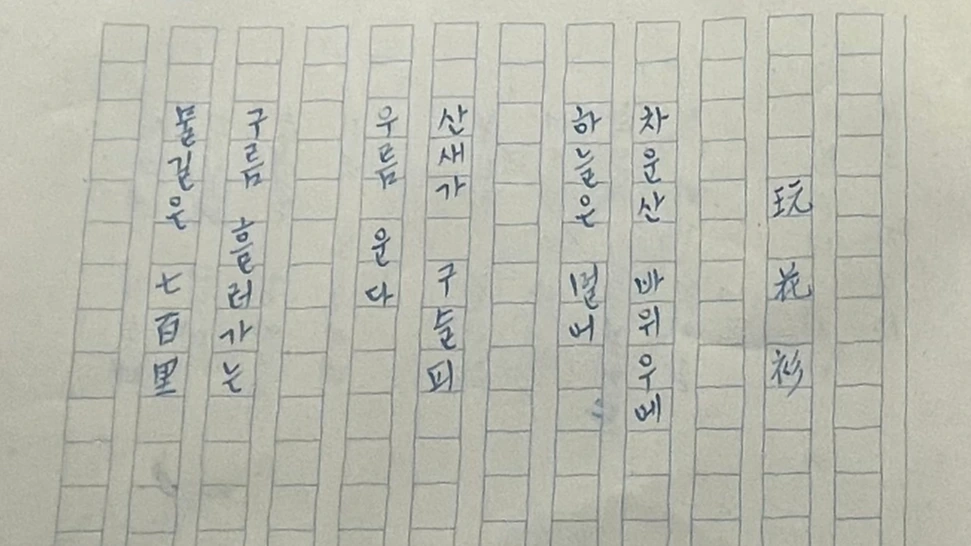 玩花衫
차운산 바위우에
하늘은 멀어
산새가 구슬피
우름 운다
구름 흘러가는
물길은 七百里